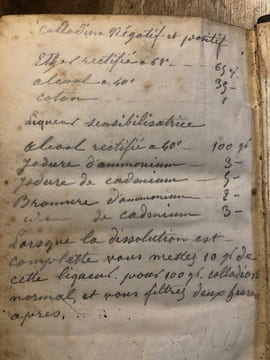 Collodion Négatif et positif
Ether rectifié a 62° — 65 gr.
alcool a 40° — 35 -
coton — 1
Liqueur sensibilisatrice
alcool rectifié a 40° — 100 gr
Jodure d'ammonium — 3 -
Jodure de cadmium — 5 -
Bromure d'ammonium — 2 -
de cadmium — 3 -
Lorsque la dissolution est
complette vous mettes 10 gr de
cette liqueur pour 100 gr. collodion
normal, et vous filtres deux jours
apres.